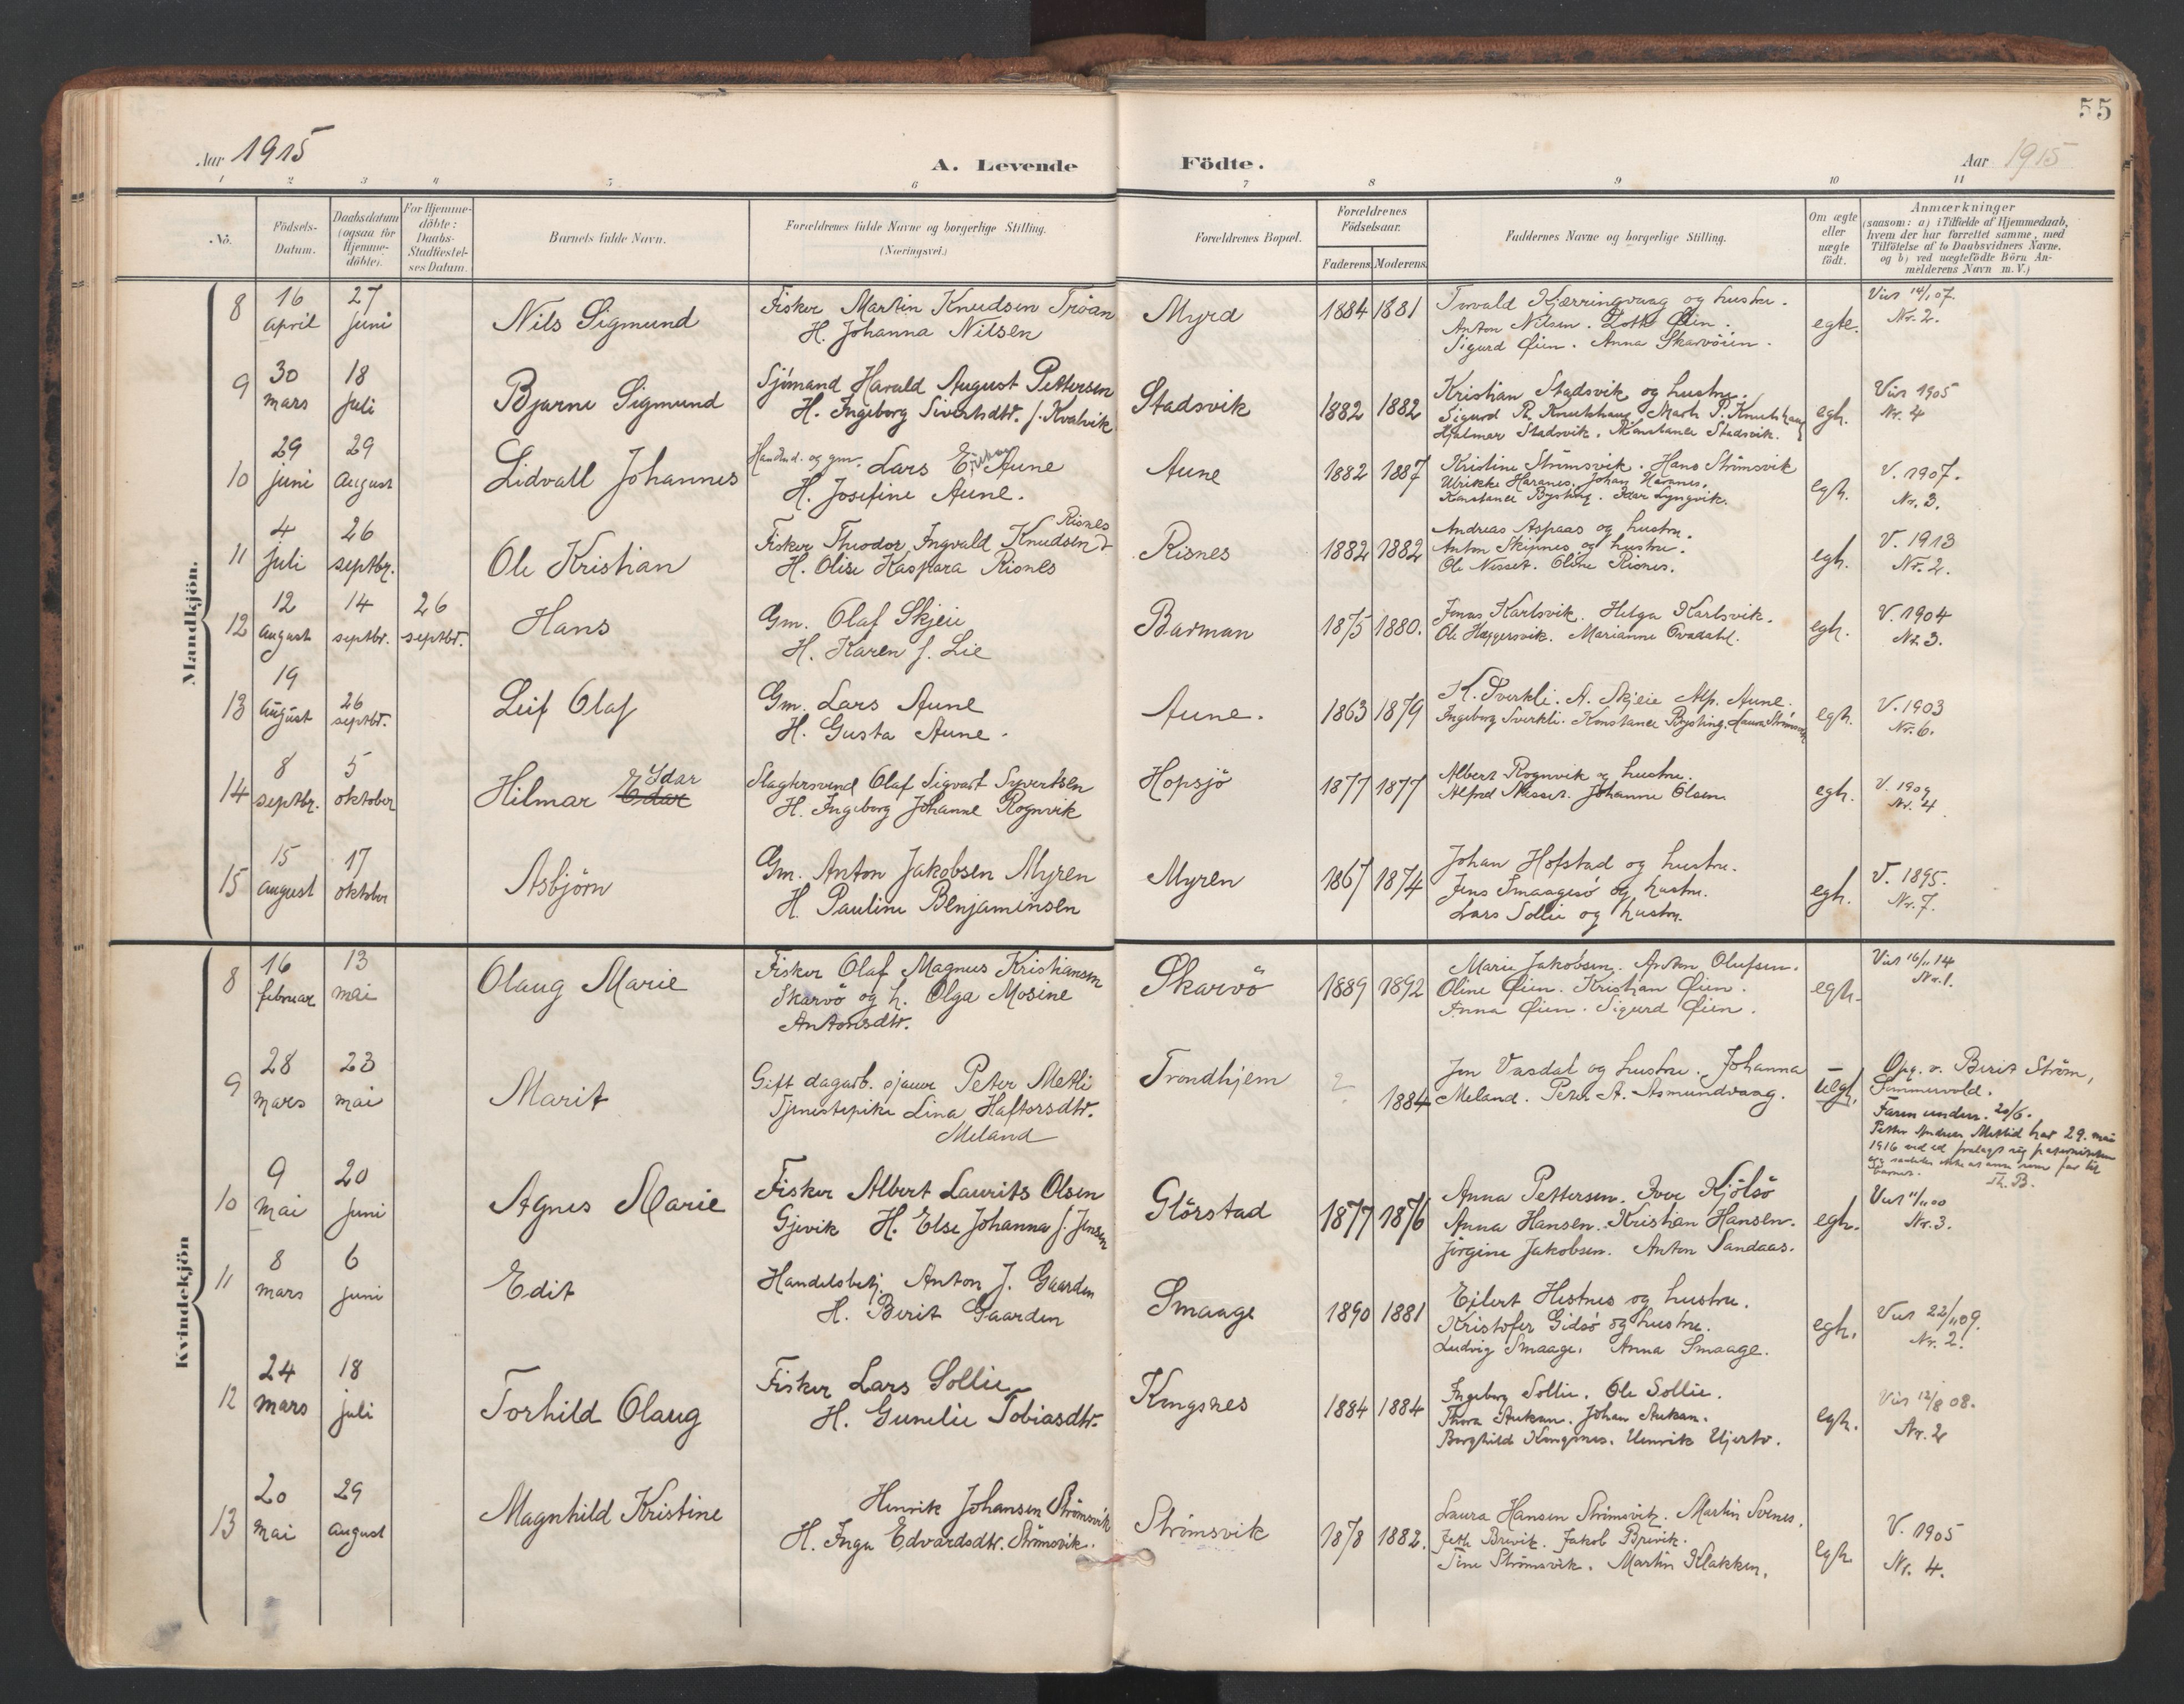 55
Aar 1915
A. Levende Födte.
Aar 1915
1 2 3 4 5 6 7 8 9 10 11
No.
Födsels-
Datum.
Daabsdatum
(ogsaa for
Hjemme-
döbte).
For Hjemme-
döbte:
Daabs-
Stadfæstel-
ses Datum.
Barnets fulde Navn.
Forældrenes fulde Navne og borgerlige Stilling.
(Næringsvei.)
Forældrenes Bopæl.
Forældrenes
Födselsaar.
Faderens. Moderens.
Faddernes Navne og borgerlige Stilling.
Om ægte
eller
uægte
födt.
Anmærkninger
(saasom: a) i Tilfælde af Hjemmedaab,
hvem der har forrettet samme, med
Tilföielse af to Daabsvidners Navne,
og b) ved uægtefödte Börn An-
melderens Navn m. V.)
Mandkjön.
8 16 april 27 juni Nils Sigmund
Fisker Martin Knudsen Tröan
H. Johanna Nilsen
Myrd 1884 1881
Kjærringvaag og hustru.
Anton Nilsen. Øien.
Sigurd Øien. Anna Skarvöien.
egte.
Viet 14/1 07.
Nr. 2.
9 30 mars 18 juli Bjarne Sigmund
Sjömand Harald August Pettersen
H. Ingeborg Sivertsdtr. f. Kvalvik
Stadsvik 1882 1882
Kristian Stadsvik og hustru.
Sigurd P. Knutshaug. Marth P. Knutshaug
Hjalmar Stadsvik. Konstance Stadsvik.
egh.
Viet 1905
Nr. 4
10 29 juni 29 august Lidvall Johannes
og gm. Lars Aune
H. Josefine Aune.
Aune 1882 1887
Kristine Strömsvik. Hans Strömsvik
Ulrikke Haranes. Johan Haranes.
Konstance Bysting. Idar Lyngvik.
egh.
V. 1907.
Nr. 3.
11 4 juli 26 septbr. Ole Kristian
Risnes
Fisker Theodor Ingvald Knudsen
H. Olise Kaspara Risnes
Risnes 1882 1882
Andreas Aspaas og hustru.
Anton Skipnes og hustru.
Ole Nesset. Oline Risnes.
egh.
V. 1913
Nr. 2.
12 12 august 14 septbr. 26 septbr. Hans
Gm. Olaf Skjeie
H. Karen f. Lie
Barman 1875 1880.
Jonas Karlsvik. Helga Karlsvik.
Ole Marianne
egh.
V. 1904
Nr. 3.
13 19 august 26 septbr. Leif Olaf
Gm. Lars Aune
H. Gusta Aune.
Aune. 1863 1879
K. Sverkli. A. Skjeie Alp. Aune.
Ingeborg Sverkli. Konstance Bysting. Laura Strömsvik.
egh.
V. 1903
Nr. 6.
14 8 septbr. 5 oktober Hilmar Edar Idar
Slagtersvend Olaf Sigvart Syvertsen
H. Ingeborg Johanne Rognvik
Hopsjö 1877 1877
Albert Rognvik og hustru.
Alfred Nesset. Johanne Olsen.
egh.
V. 1909
Nr. 4
15 15 august 17 oktober Asbjörn
Gm. Anton Jakobsen Myren
H. Pauline Benjaminsen
Myren 1867 1874
Johan Hofstad og hustru.
Jens Smaagesö og hustru.
Lars Sollie og hustru.
egh.
V. 1895.
Nr. 7.
Kvindekjön
8 16 februar 13 mai Olaug Marie
Fisker Olaf Magnus Kristiansen
Skarvö og h. Olga Mosine
Antonsdtr.
Skarvö 1889 1892
Marie Jakobsen. Anton Olufsen.
Oline Øien. Kristian Øien.
Anna Øien. Sigurd Øien.
egh.
Viet 16/11 14
Nr. 1.
9 28 mars 23 mai Marit
Gift dagarb. sjauer Peter Metli
Tjenestepike Lina Haftorsdtr.
Meland
Trondhjem ? 1884
Jon Vasdal og hustru. Johanna
Meland. Peter A. Asmundvaag.
uegh.
Opg. v. Berit Ström,
Sommervold.
Faren underr. 20/6.
Petter Andreas Metlid har 29. mai
1916 ved ed fralagt sig paterniteten
Th. B.
10 9 mai 20 juni Agnes Marie
Fisker Albert Laurits Olsen
Gjevik H. Else Johanna f. Jensen
Glörstad 1877 1876
Anna Pettersen. Iver Kjölsö
Anna Hansen. Kristian Hansen.
Jörgine Jakobsen. Anton Sandaas.
egh.
Viet 11/11 00
Nr. 3.
11 8 mars 6 juni Edit
Handelsbetj. Anton J. Gaarden
H. Berit Gaarden
Smaage 1890 1881
Ejlert Hestnes og hustru.
Kristofer Gidsö og hustru.
Ludvig Smaage. Anna Smaage.
egh.
Viet 22/11 09.
Nr. 2.
12 24 mars 18 juli Torhild Olaug
Fisker Lars Sollie
H. Gunelie Tobiasdtr.
Kongsnes 1884 1884
Ingeborg Sollie. Ole Sollie.
Thora Aukan. Johan Aukan.
Borghild Kongsnes. Henrik
egh.
Viet 12/8 08.
Nr. 2
13 20 mai 29 august Magnhild Kristine
Henrik Johansen Strömsvik
H. Inga Edvardsdtr. Strömsvik.
Strömsvik 1878 1882.
Laura Hansen Strömsvik. Martin
Brevik. Jakob Brevik.
Sine Strömsvik. Martin Klakken.
egh
V. 1905
Nr. 4.